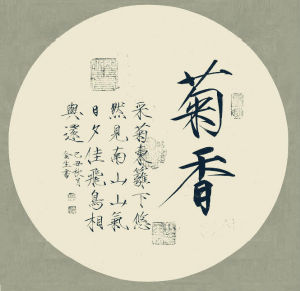 菊香
采菊東籬下悠
然見南山山氣
日夕佳飛鳥相
與還
己丑秋月